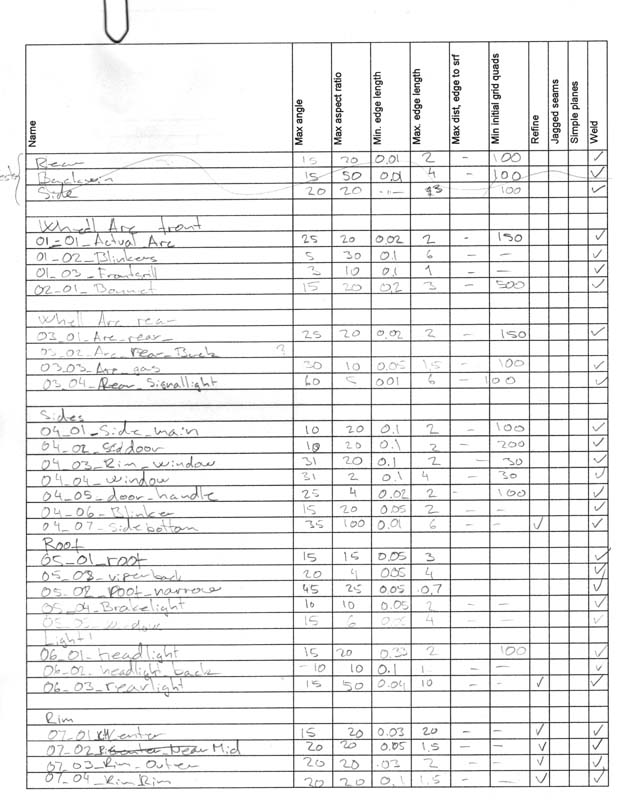 Name Max angle Max aspect ratio Min. edge length Max. edge length Max dist, edge to srf Min initial grid quads Refine Jagged seams Simple planes Weld
Rear 15 20 0.01 2 - 100 ✓
15 50 0.01 4 - 100 ✓
Side 20 20 -- 100 ✓
Whell Arc front
01-01_Actual_Arc 25 20 0.02 2 - 150 ✓
01-02_Blinkers 5 30 0.1 6 - - ✓
01_03_Frontgrill 3 10 0.1 1 - - ✓
02-01_Bonnet 15 20 0.2 3 - 500 ✓
Whell Arc rear
03_01_Arc_rear_ 25 20 0.02 2 - 150 ✓
03_02_Arc_rear_Back ?
03_03_Arc_gas 30 10 0.05 1,5 - 100 ✓
03_04_Rear_Signallight 60 5 001 6 - 100 ✓
Sides
04_01_Side_main 10 20 0.1 2 - 100 ✓
04_02_Sddoor 10 20 0.1 2 - 200 ✓
04_03_Rim_window 31 20 0.1 2 - 30 ✓
04_04_window 31 2 0.1 4 - 30 ✓
04_05_door_handle 25 4 0.02 2 - 100 ✓
04_06_Blinker 15 20 0.05 2 - - ✓
04_07_Sidebottom 35 100 0.01 6 - - ✓ ✓
Roof
05_01_roof 15 15 0.05 3 ✓
05_03_viperback 20 4 0.05 4 ✓
05_02_Roof_narrow 45 25 0.05 0,7 ✓
05_04_Brakelight 10 10 0.05 2 - - ✓
15 6 4 - - ✓
Light
06_01_headlight 15 20 0.33 2 100 ✓
06_02_headlight_back -10 10 0.1 1 - - ✓
06_03_rearlight 15 50 0.04 10 - - ✓ ✓
Rim
07_01 Center 15 20 0.03 20 - - ✓ ✓
07_02 Near Mid 20 20 0.05 1,5 - - ✓ ✓
07_03_Rim_Outer 20 20 .03 2 - - ✓ ✓
07_04_Rim Rim 20 20 0.1 1,5 - - ✓ ✓